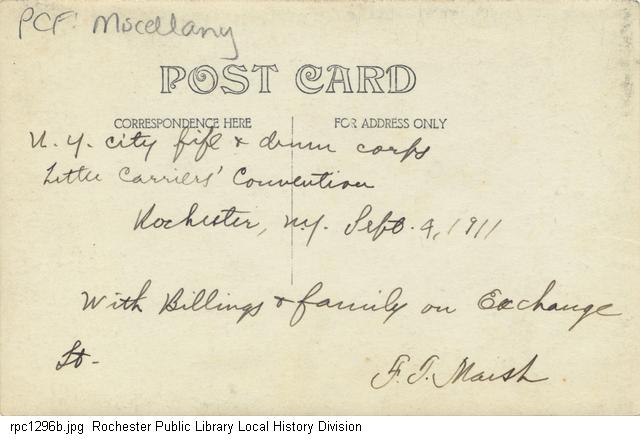 PCF: Miscellany
POST CARD
CORRESPONDENCE HERE
FOR ADDRESS ONLY
N.Y. city fife & drum corps
Letter Carriers' Convention
Rochester, N.Y. Sept. 4, 1911
With Billings & family on Exchange
St-
F. J. Marsh
rpc1296b.jpg Rochester Public Library Local History Division